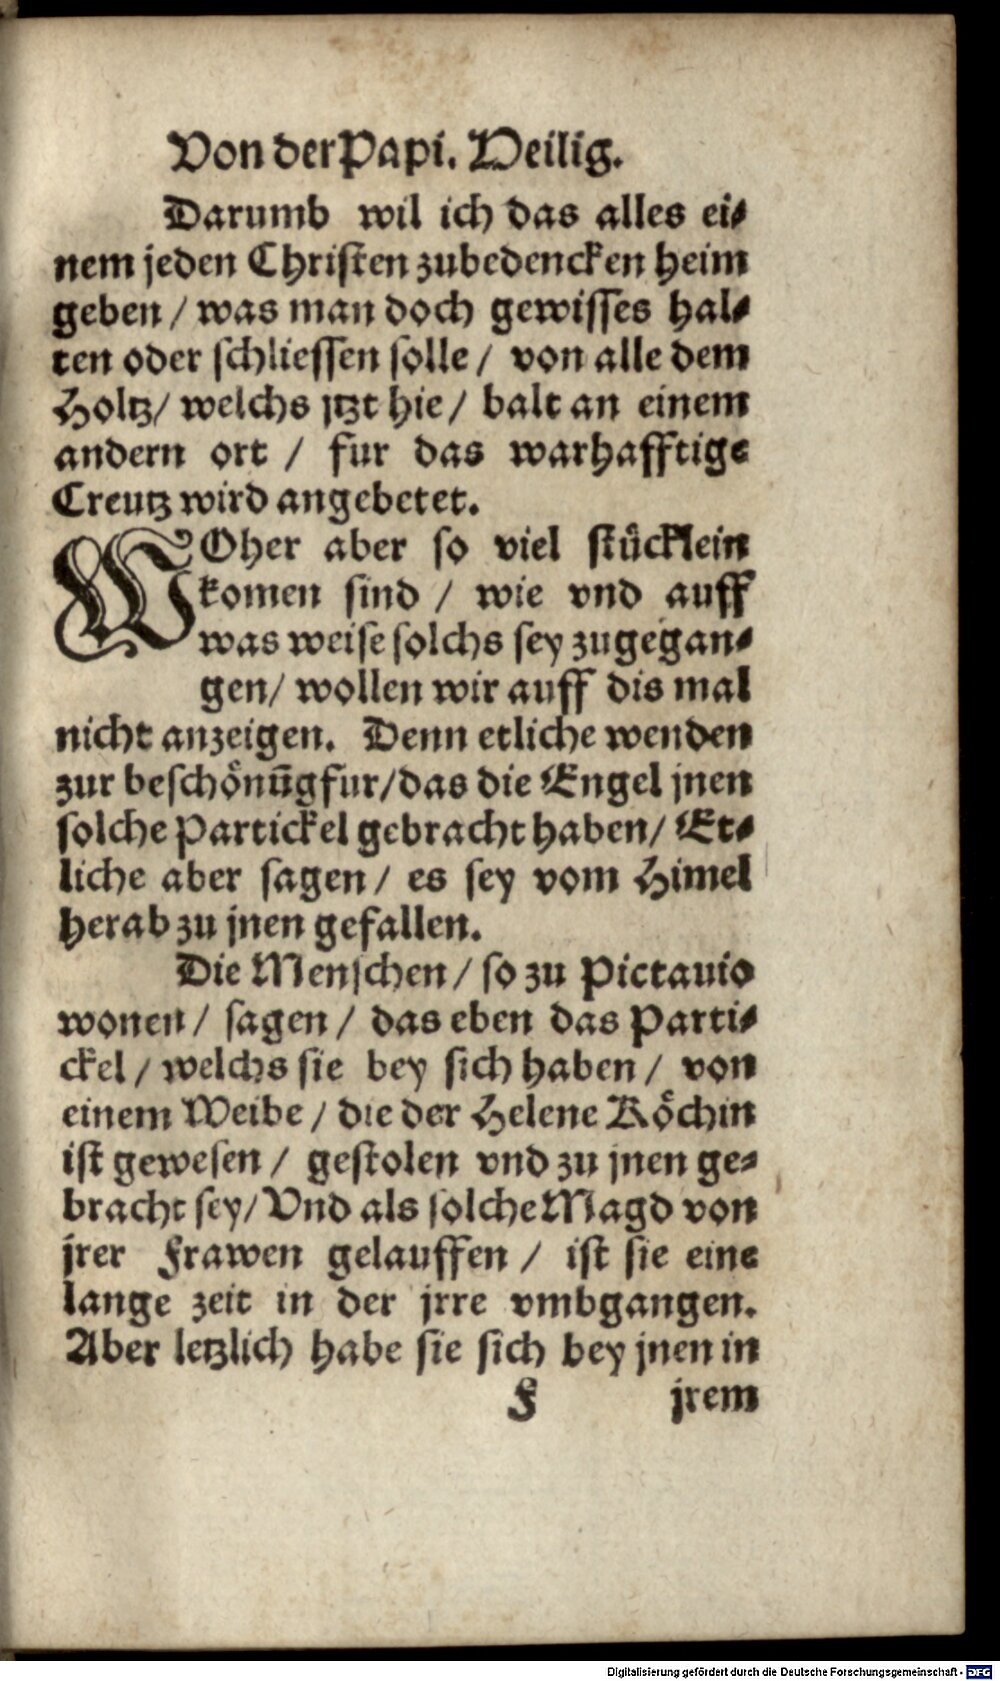 Von der Papi. Heilig.
Darumb wil ich das alles ei-
nem jeden Christen zubedencken heim
geben / was man doch gewisses hal-
ten oder schliessen solle / von alle dem
Holtz / welchs jtzt hie / balt an einem
andern ort / fur das warhafftige
Creutz wird angebetet.
WOher aber so viel stücklein
komen sind / wie vnd auff
was weise solchs sey zugegan-
gen / wollen wir auff dis mal
nicht anzeigen. Denn etliche wenden
zur beschönūg fur / das die Engel jnen
solche Partickel gebracht haben / Et-
liche aber sagen / es sey vom Himel
herab zu jnen gefallen.
Die Menschen / so zu Pictauio
wonen / sagen / das eben das Parti-
ckel / welchs sie bey sich haben / von
einem Weibe / die der Helene Köchin
ist gewesen / gestolen vnd zu jnen ge-
bracht sey / Vnd als solche Magd von
jrer Frawen gelauffen / ist sie eine
lange zeit in der jrre vmbgangen.
Aber letzlich habe sie sich bey jnen in
F jrem
Digitalisierung gefördert durch die Deutsche Forschungsgemeinschaft - DFG